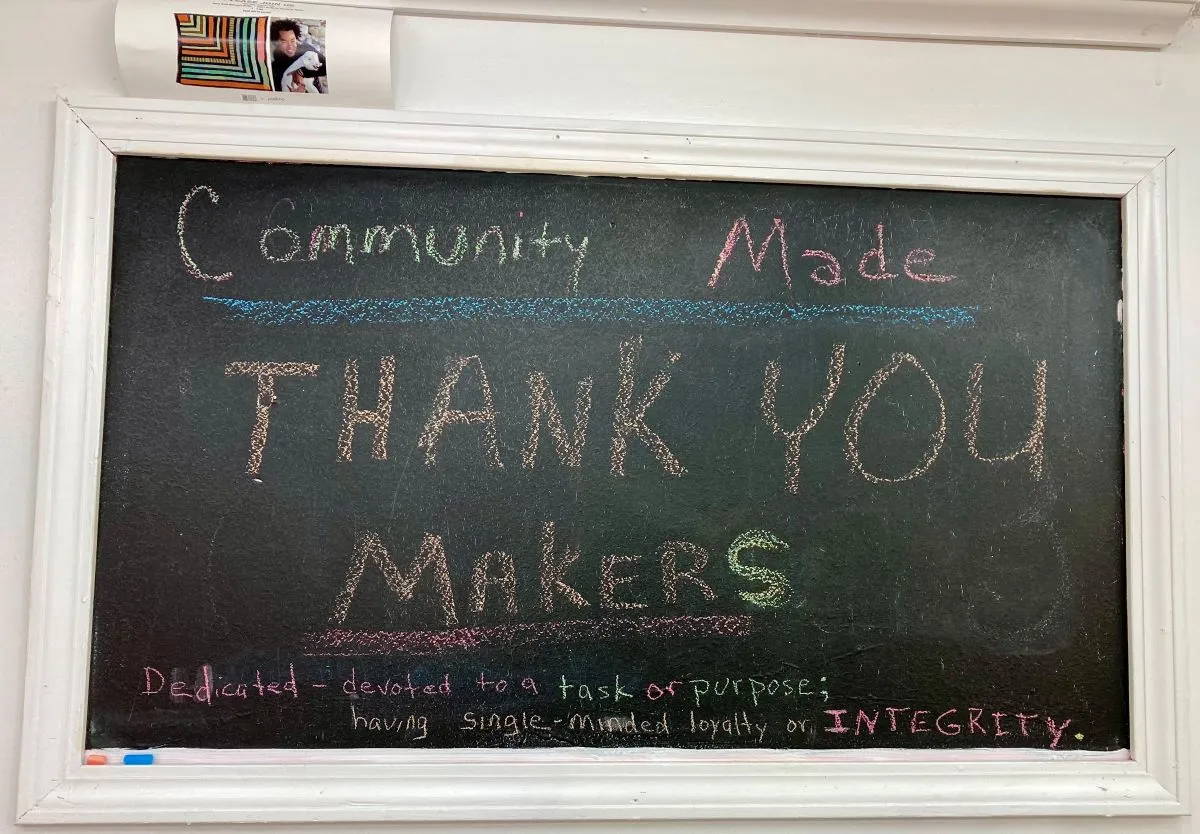 Community Made
THANK YOU
MAKERS
Dedicated - devoted to a task or purpose;
having single-minded loyalty or INTEGRITY.